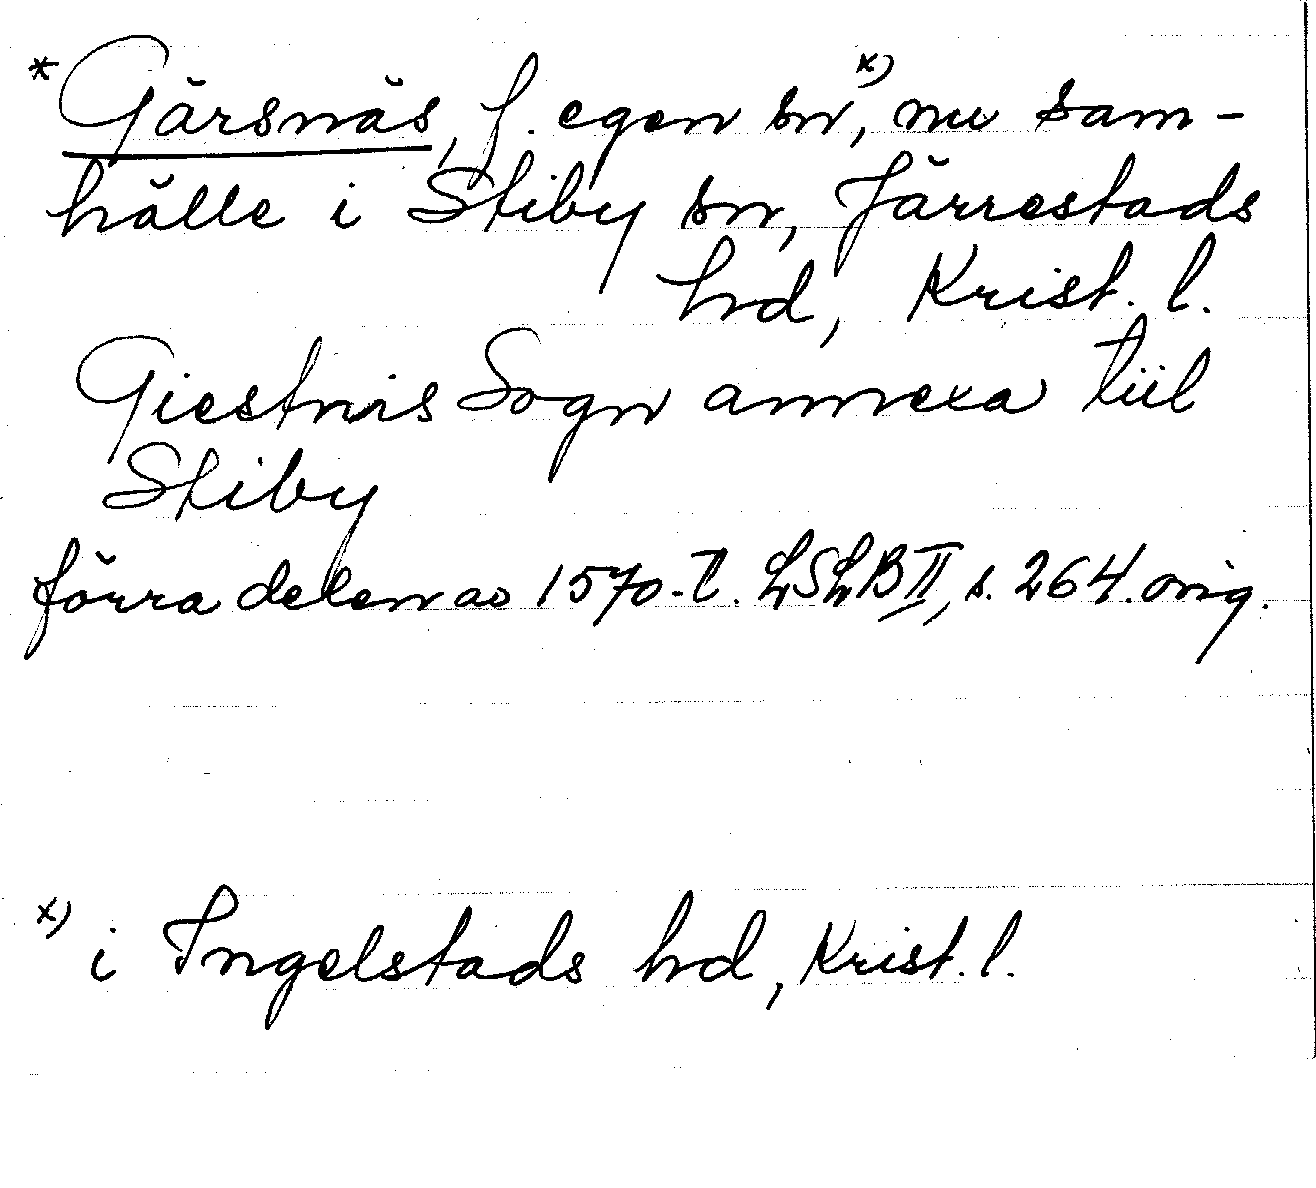 *Gärsnäs, f. egen sn x), nu sam-
hälle i Stiby sn, Järrestads
hd, Krist. l.
Giestnis Sogn annexa tiil
Stiby
förra delen av 1570-t. LSLB II, s. 264. orig.
x) i Ingelstads hd, Krist. l.